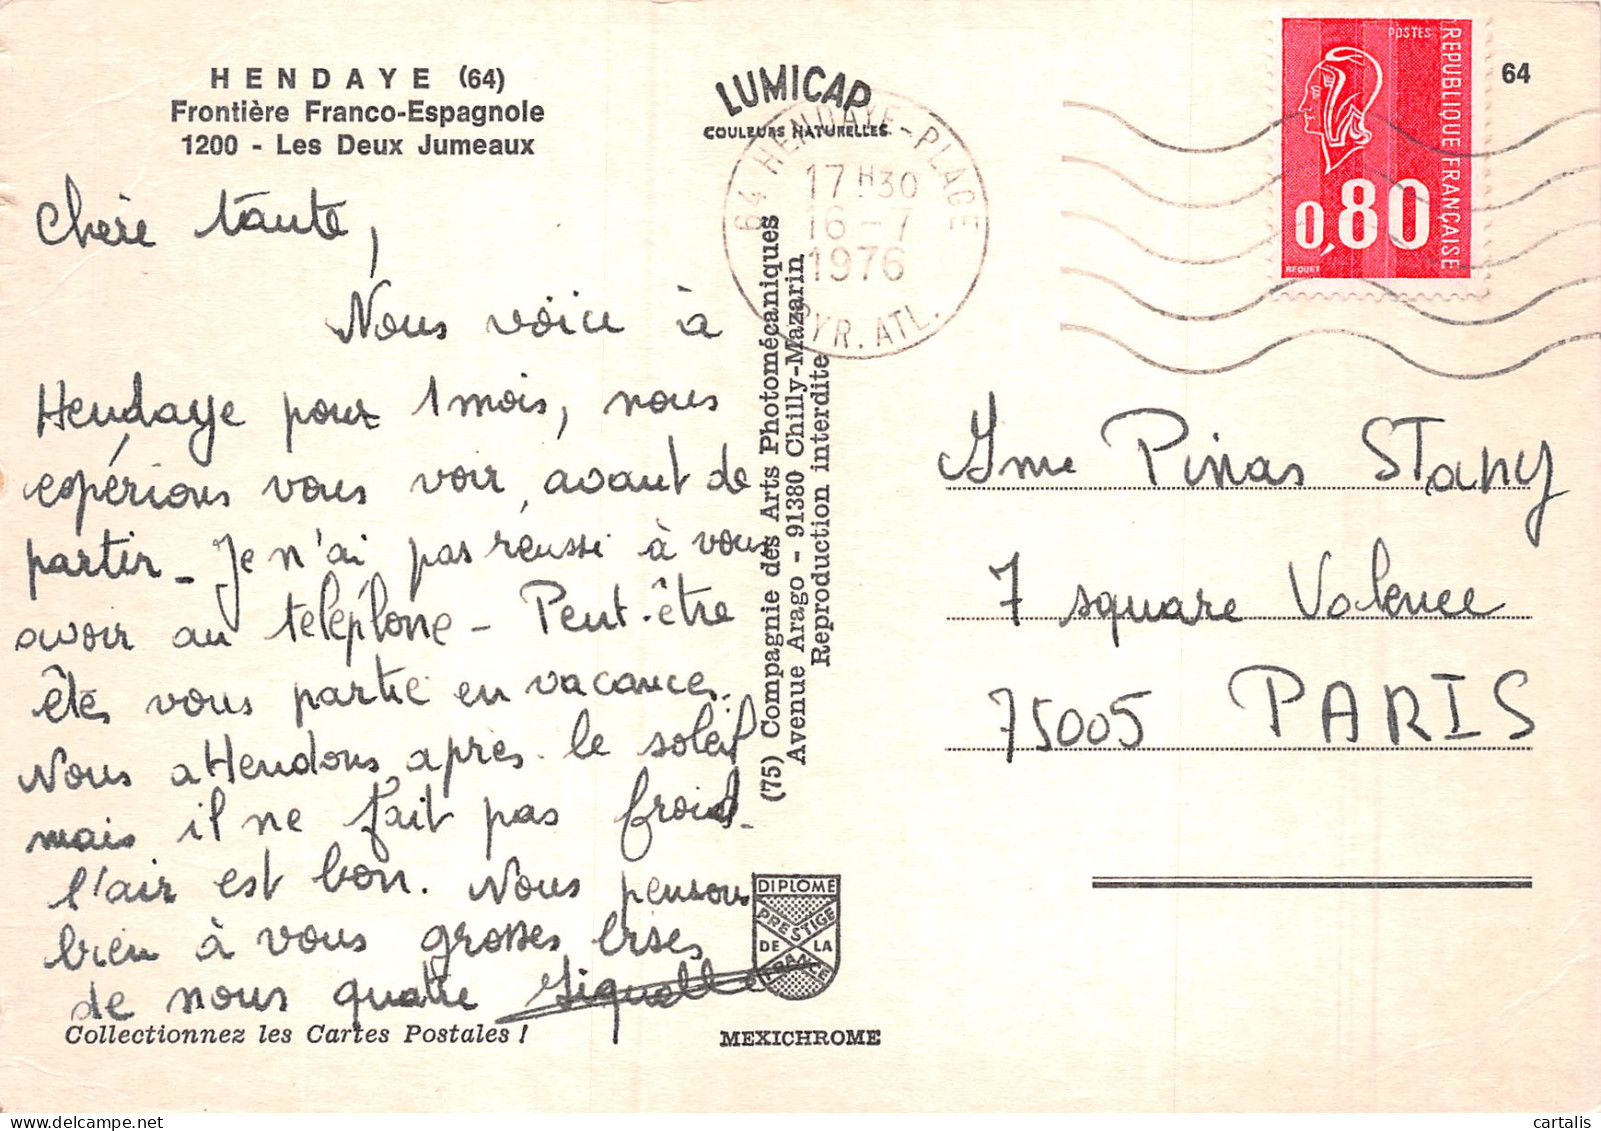 HENDAYE (64)
Frontière Franco-Espagnole
1200 - Les Deux Jumeaux
Chère tante,
Nous voici à
Hendaye pour 1 mois, nous
espérions vous voir, avant de
partir - Je n'ai pas réussi à vous
avoir au téléphone - Peut-être
êtes vous partie en vacances.
Nous attendons après le soleil
mais il ne fait pas froid -
l'air est bon. Nous pensons
bien à vous grosses bises
de nous quatre
Collectionnez les Cartes Postales !
LUMICAP
COULEURS NATURELLES
64 HENDAYE-PLAGE
17 H30
16-7
1976
PYR. ATL.
(75) Compagnie des Arts Photomécaniques
Avenue Arago - 91380 Chilly-Mazarin
Reproduction interdite
DIPLOME
PRESTIGE
DE LA
FRANCE
MEXICHROME
POSTES
REPUBLIQUE FRANÇAISE
0,80
BEQUET
64
Mme Pinas Stany
7 square Valence
75005 PARIS
cartalis